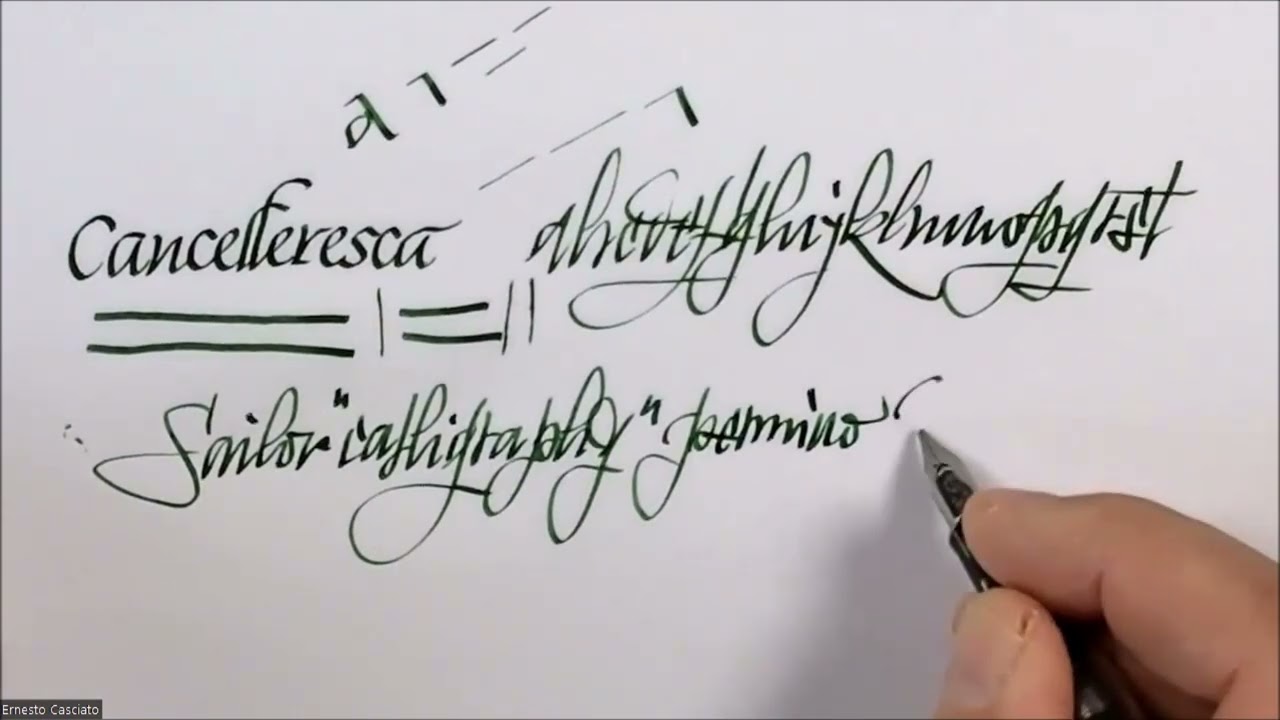 a
Cancelleresca abcdefghijklmnopqrst
Sailor "calligraphy" pennino
Ernesto Casciato